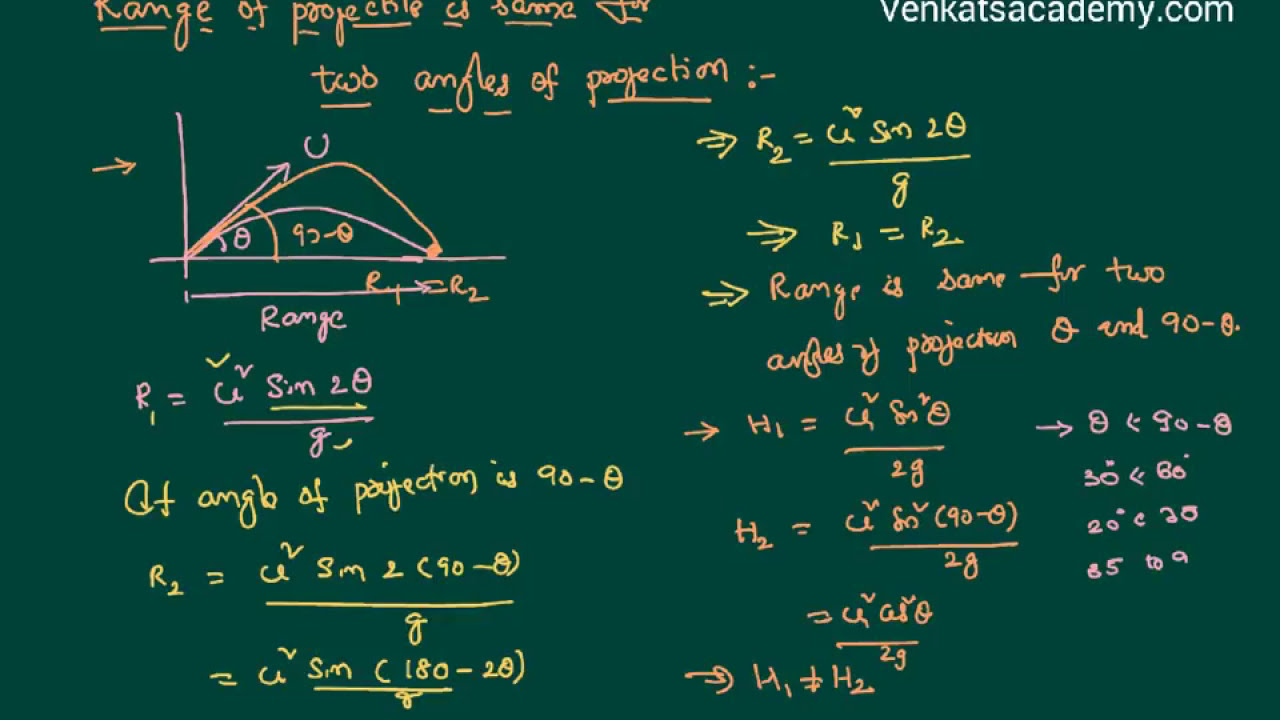 Range of projectile is same for
Venkatsacademy.com
two angles of projection :-
U
θ
90-θ
R₁ = R₂
Range
R₁ = u² Sin 2θ
g
If angle of projection is 90-θ
R₂ = u² Sin 2 (90-θ)
g
= u² Sin (180-2θ)
g
⇒ R₂ = u² Sin 2θ
g
⇒ R₁ = R₂
⇒ Range is same for two
angles of projection θ and 90-θ.
→ H₁ = u² Sin²θ
2g
H₂ = u² Sin² (90-θ)
2g
= u² cos²θ
2g
→ H₁ ≠ H₂
→ θ < 90-θ
30° < 60°
20° <
85 to 9